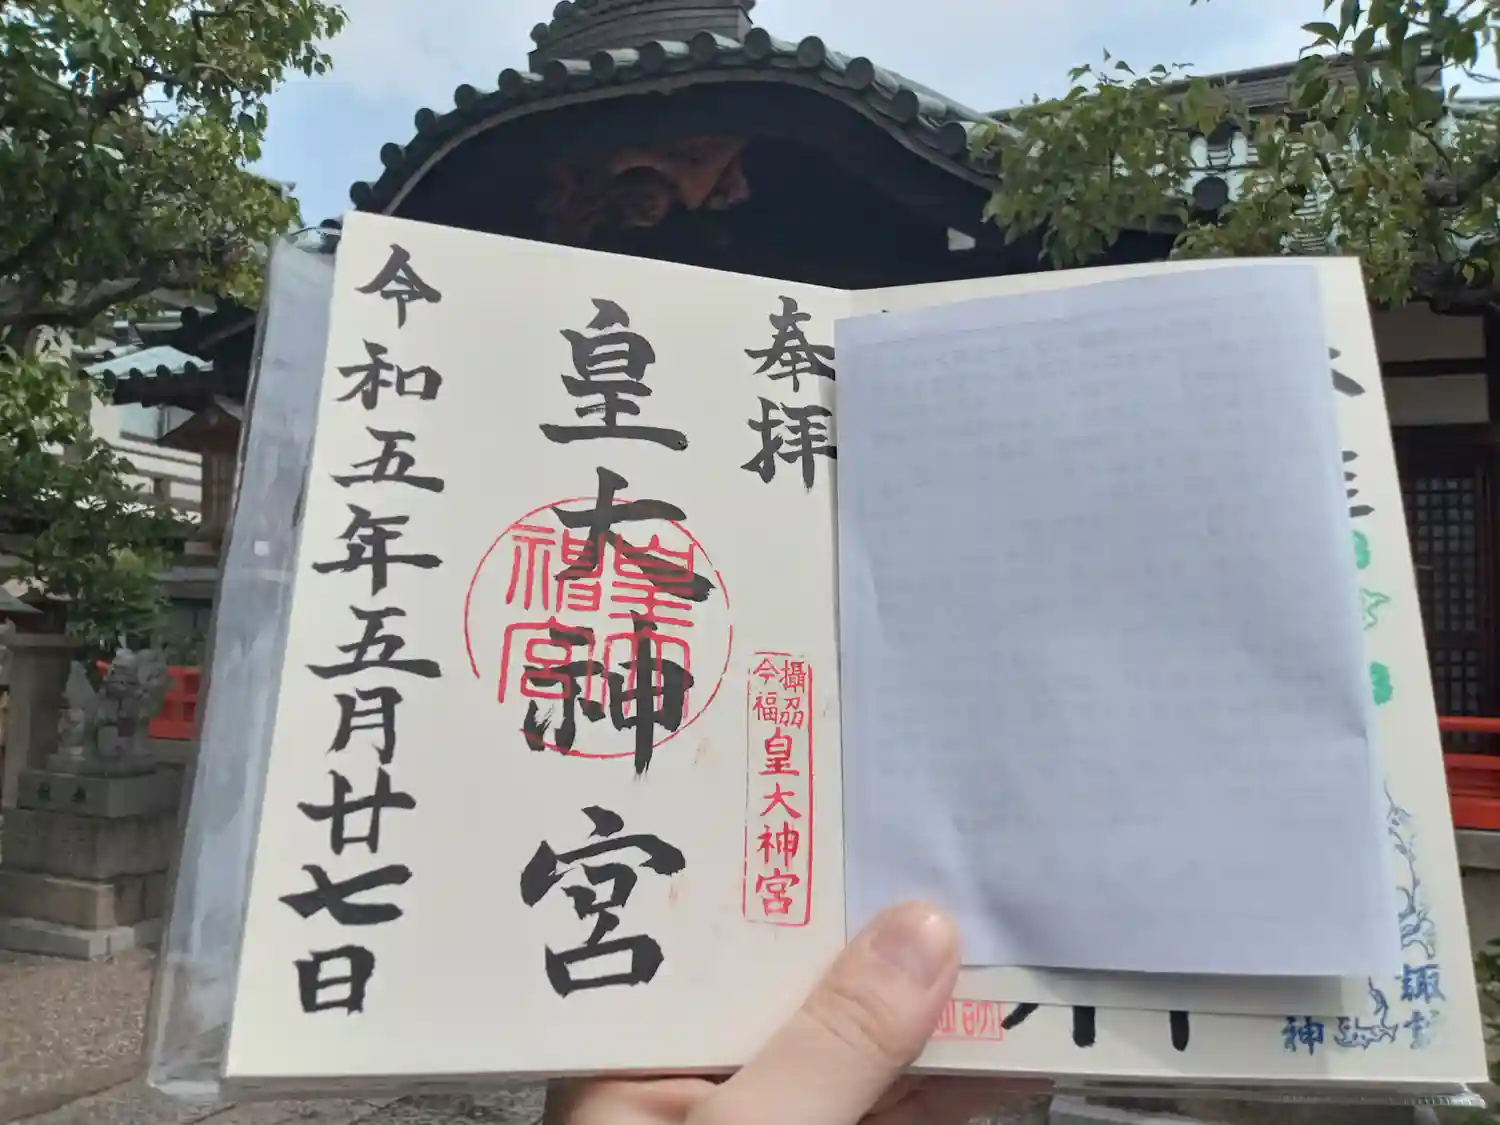 奉拝
皇大神宮
皇大神宮
攝刕
今福
皇大神宮
令和五年五月廿七日
諏
神